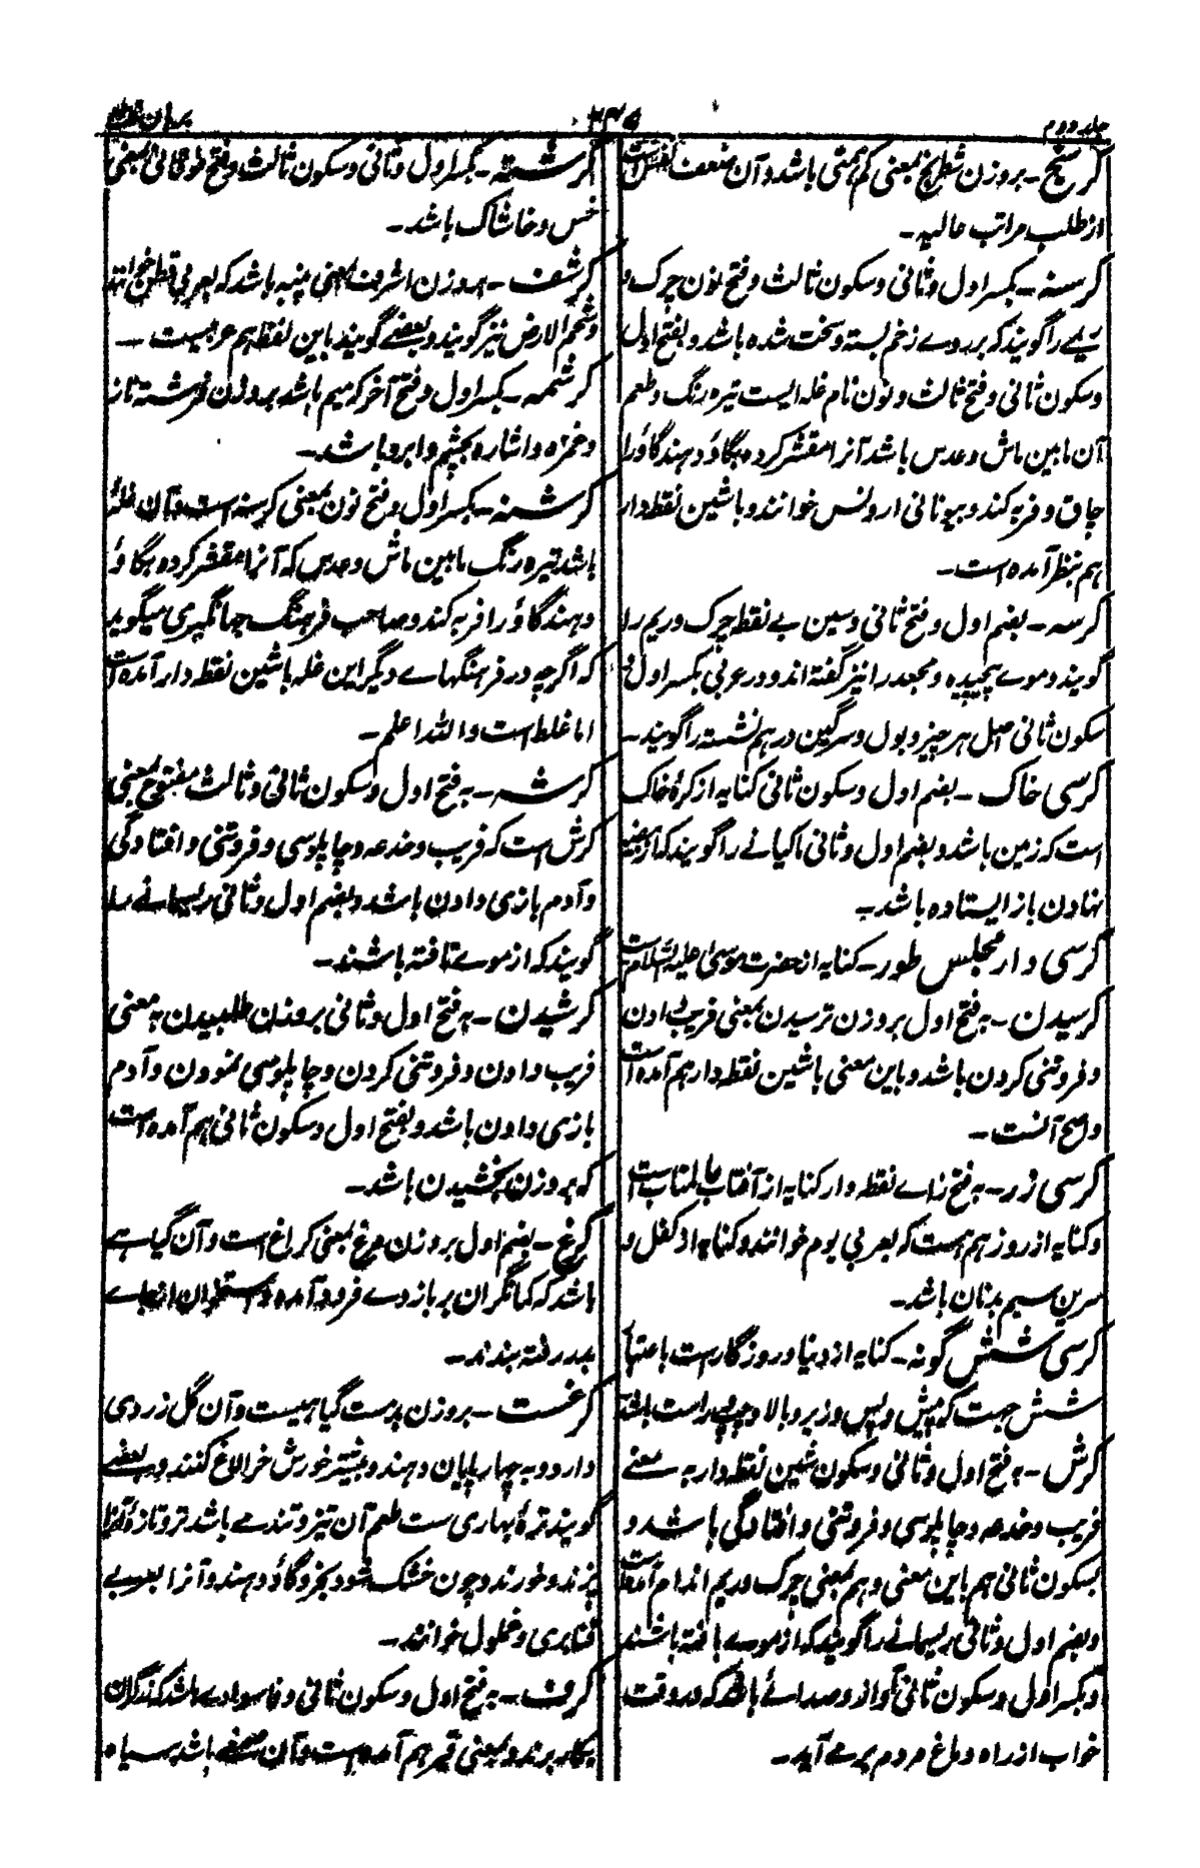 جلد دوم
برهان
کرسنج - بروزن شطرنج بمعنی کم همتی باشد و آن ضعف نفس است
از طلب مراتب عالیه -
کرسنه - بکسر اول و ثانی و سکون ثالث و فتح نون چرک و
ریمے را گویند که برروے زخم بسته و سخت شده باشد و بفتح اول
و سکون ثانی و فتح ثالث و نون نام غله ایست تیره رنگ و طعم
آن مابین ماش و عدس باشد آنرا مقشر کرده بگاؤ دهند گاؤ را
چاق و فربه کند و بیونانی اروبس خوانند و باشین نقطه دار
هم بنظر آمده است -
کرسه - بضم اول و فتح ثانی و سین بے نقطه چرک و ریم را
گویند و موے پیچیده و مجعد را نیز گفته اند و در عربی بکسر اول و
سکون ثانی اصل هر چیز و بول و سرگین درهم نشسته را گویند -
کرسی خاک - بضم اول و سکون ثانی کنایه از کرۂ خاک
است که زمین باشد و بضم اول و ثانی ماکیانے را گویند که از بیضه
نهادن باز ایستاده باشد -
کرسی دار مجلس طور - کنایه از حضرت موسی علیه السلام است
کرسیدن - به فتح اول بروزن ترسیدن بمعنی فریب دادن
و فروتنی کردن باشد و باین معنی باشین نقطه دار هم آمده است
و اصح آنست -
کرسی زر - به فتح زاے نقطه دار کنایه از آفتاب عالمتاب است
و کنایه از روز هم هست که بعربی یوم خوانند و کنایه از کفل و
سرین سیم بدنان باشد -
کرسی شش گونه - کنایه از دنیا و روزگار است باعتبار
شش جهت که پیش و پس و زیر و بالا و چپ و راست باشد
کرش - به فتح اول و ثانی و سکون شین نقطه دار به معنے
فریب و خدعه و چاپلوسی و فروتنی و افتادگی باشد و
بسکون ثانی هم باین معنی و هم بمعنی چرک و ریم اندام آمده است
و بضم اول و ثانی ریسمانے را گویند که از موے بافته باشند
و بکسر اول و سکون ثانی آواز و صدائے باشد که در وقت
خواب از راه دماغ مردم بر مے آید -
کرشته - بکسر اول و ثانی و سکون ثالث و فتح فوقانی بمعنی
خس و خاشاک باشد -
کرشف - بروزن اشرف بمعنی پنبه باشد که بعربی قطن خوانند
و شحم الارض نیز گویند و بعضے گویند باین لفظ هم عربیست -
کرشمه - بکسر اول و فتح آخر که میم باشد بروزن فرشته ناز
و غمزه و اشاره بچشم و ابرو باشد -
کرشنه - بکسر اول و فتح نون بمعنی کرسنه است و آن غلۂ
باشد تیره رنگ مابین ماش و عدس که آنرا مقشر کرده بگاؤ
دهند گاؤ را فربه کند و صاحب فرهنگ جهانگیری میگوید
که اگرچه در فرهنگهاے دیگر این غله باشین نقطه دار آمده است
اما غلط است و الله اعلم -
کرشه - به فتح اول و سکون ثانی و ثالث مفتوح بمعنی
کرش است که فریب و خدعه و چاپلوسی و فروتنی و افتادگی
و آدم بازی دادن باشد و بضم اول و ثانی ریسمانے را
گویند که از موے تافته باشند -
کرشیدن - به فتح اول و ثانی بروزن طلبیدن به معنی
فریب دادن و فروتنی کردن و چاپلوسی نمودن و آدم
بازی دادن باشد و بفتح اول و سکون ثانی هم آمده است
که بروزن بخشیدن باشد -
کرغ - بضم اول بروزن مرغ بمعنی کراغ است و آن گیاهے
باشد که کمانگران بر بازوے فرود آمده و استخوان از جاے
بدر رفته بندند -
کرغست - بروزن بدست گیاهیست و آن گل زردی
دارد و به چهارپایان دهند و بیشتر خورش خر الاغ کنند و بعضے
گویند ترۂ بهاری ست طعم آن تیز و تندے باشد تر و تازه آنرا
پزند و خورند و چون خشک شود بخر و گاؤ دهند و آنرا بعربے
قنابری و غملول خوانند -
کرف - به فتح اول و سکون ثانی و فا سوادے باشد که زرگران
بکار برند و بمعنی قیر هم آمده است و آن صمغے باشد سیاه